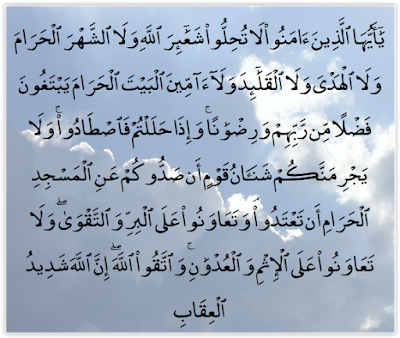 يَٰٓأَيُّهَا ٱلَّذِينَ ءَامَنُوا۟ لَا تُحِلُّوا۟ شَعَٰٓئِرَ ٱللَّهِ وَلَا ٱلشَّهْرَ ٱلْحَرَامَ
وَلَا ٱلْهَدْىَ وَلَا ٱلْقَلَٰٓئِدَ وَلَآ ءَآمِّينَ ٱلْبَيْتَ ٱلْحَرَامَ يَبْتَغُونَ
فَضْلًا مِّن رَّبِّهِمْ وَرِضْوَٰنًا ۚ وَإِذَا حَلَلْتُمْ فَٱصْطَادُوا۟ ۚ وَلَا
يَجْرِمَنَّكُمْ شَنَـَٔانُ قَوْمٍ أَن صَدُّوكُمْ عَنِ ٱلْمَسْجِدِ
ٱلْحَرَامِ أَن تَعْتَدُوا۟ ۘ وَتَعَاوَنُوا۟ عَلَى ٱلْبِرِّ وَٱلتَّقْوَىٰ ۖ وَلَا
تَعَاوَنُوا۟ عَلَى ٱلْإِثْمِ وَٱلْعُدْوَٰنِ ۚ وَٱتَّقُوا۟ ٱللَّهَ ۖ إِنَّ ٱللَّهَ شَدِيدُ
ٱلْعِقَابِ